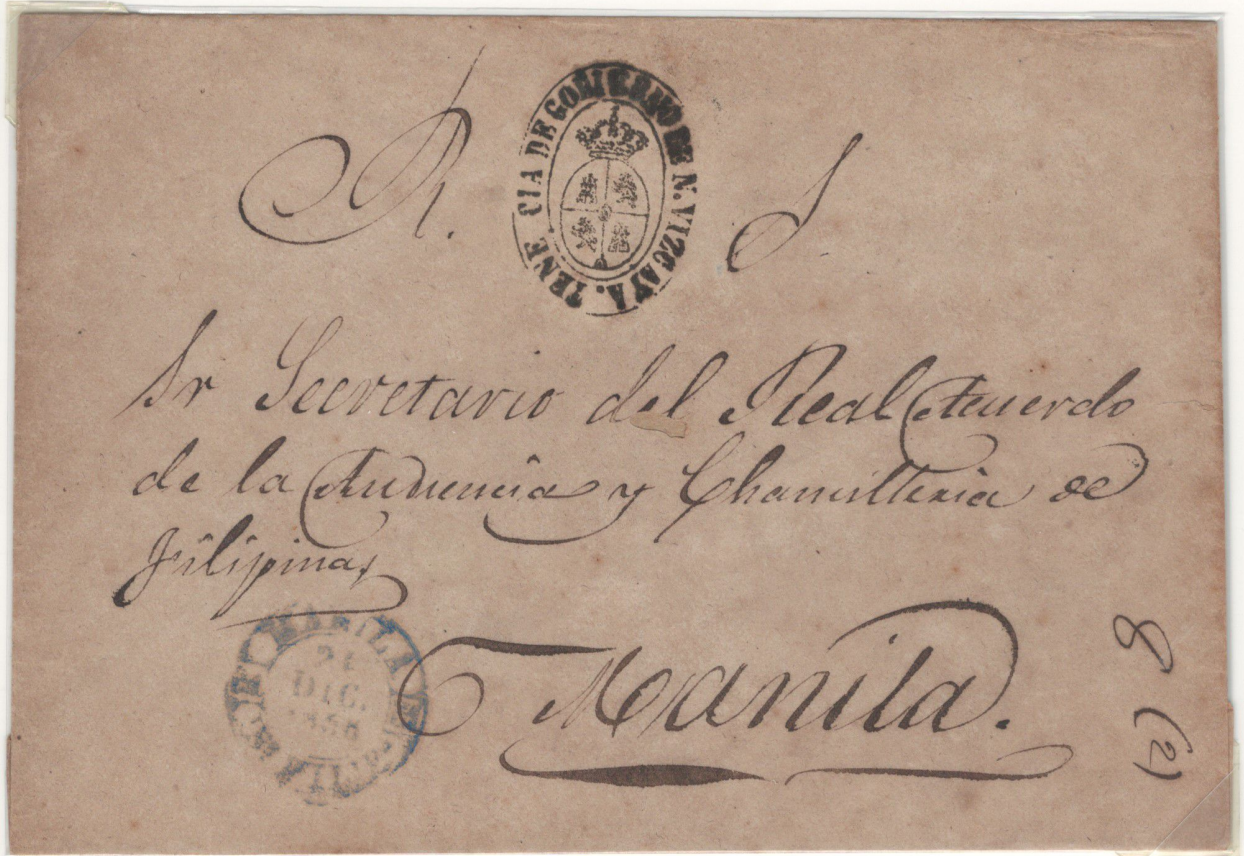 R. S
TENE CIA DE GOBIERNO DE N. VIZCAYA.
Sr Secretario del Real Acuerdo
de la Audiencia y Chancilleria de
Filipinas
MANILA
21
DIC.
Manila.
8 (2)